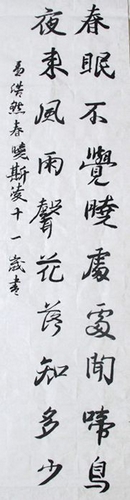 春眠不覺曉處處聞啼鳥
夜來風雨聲花落知多少
孟浩然春曉斯淩十一歲書